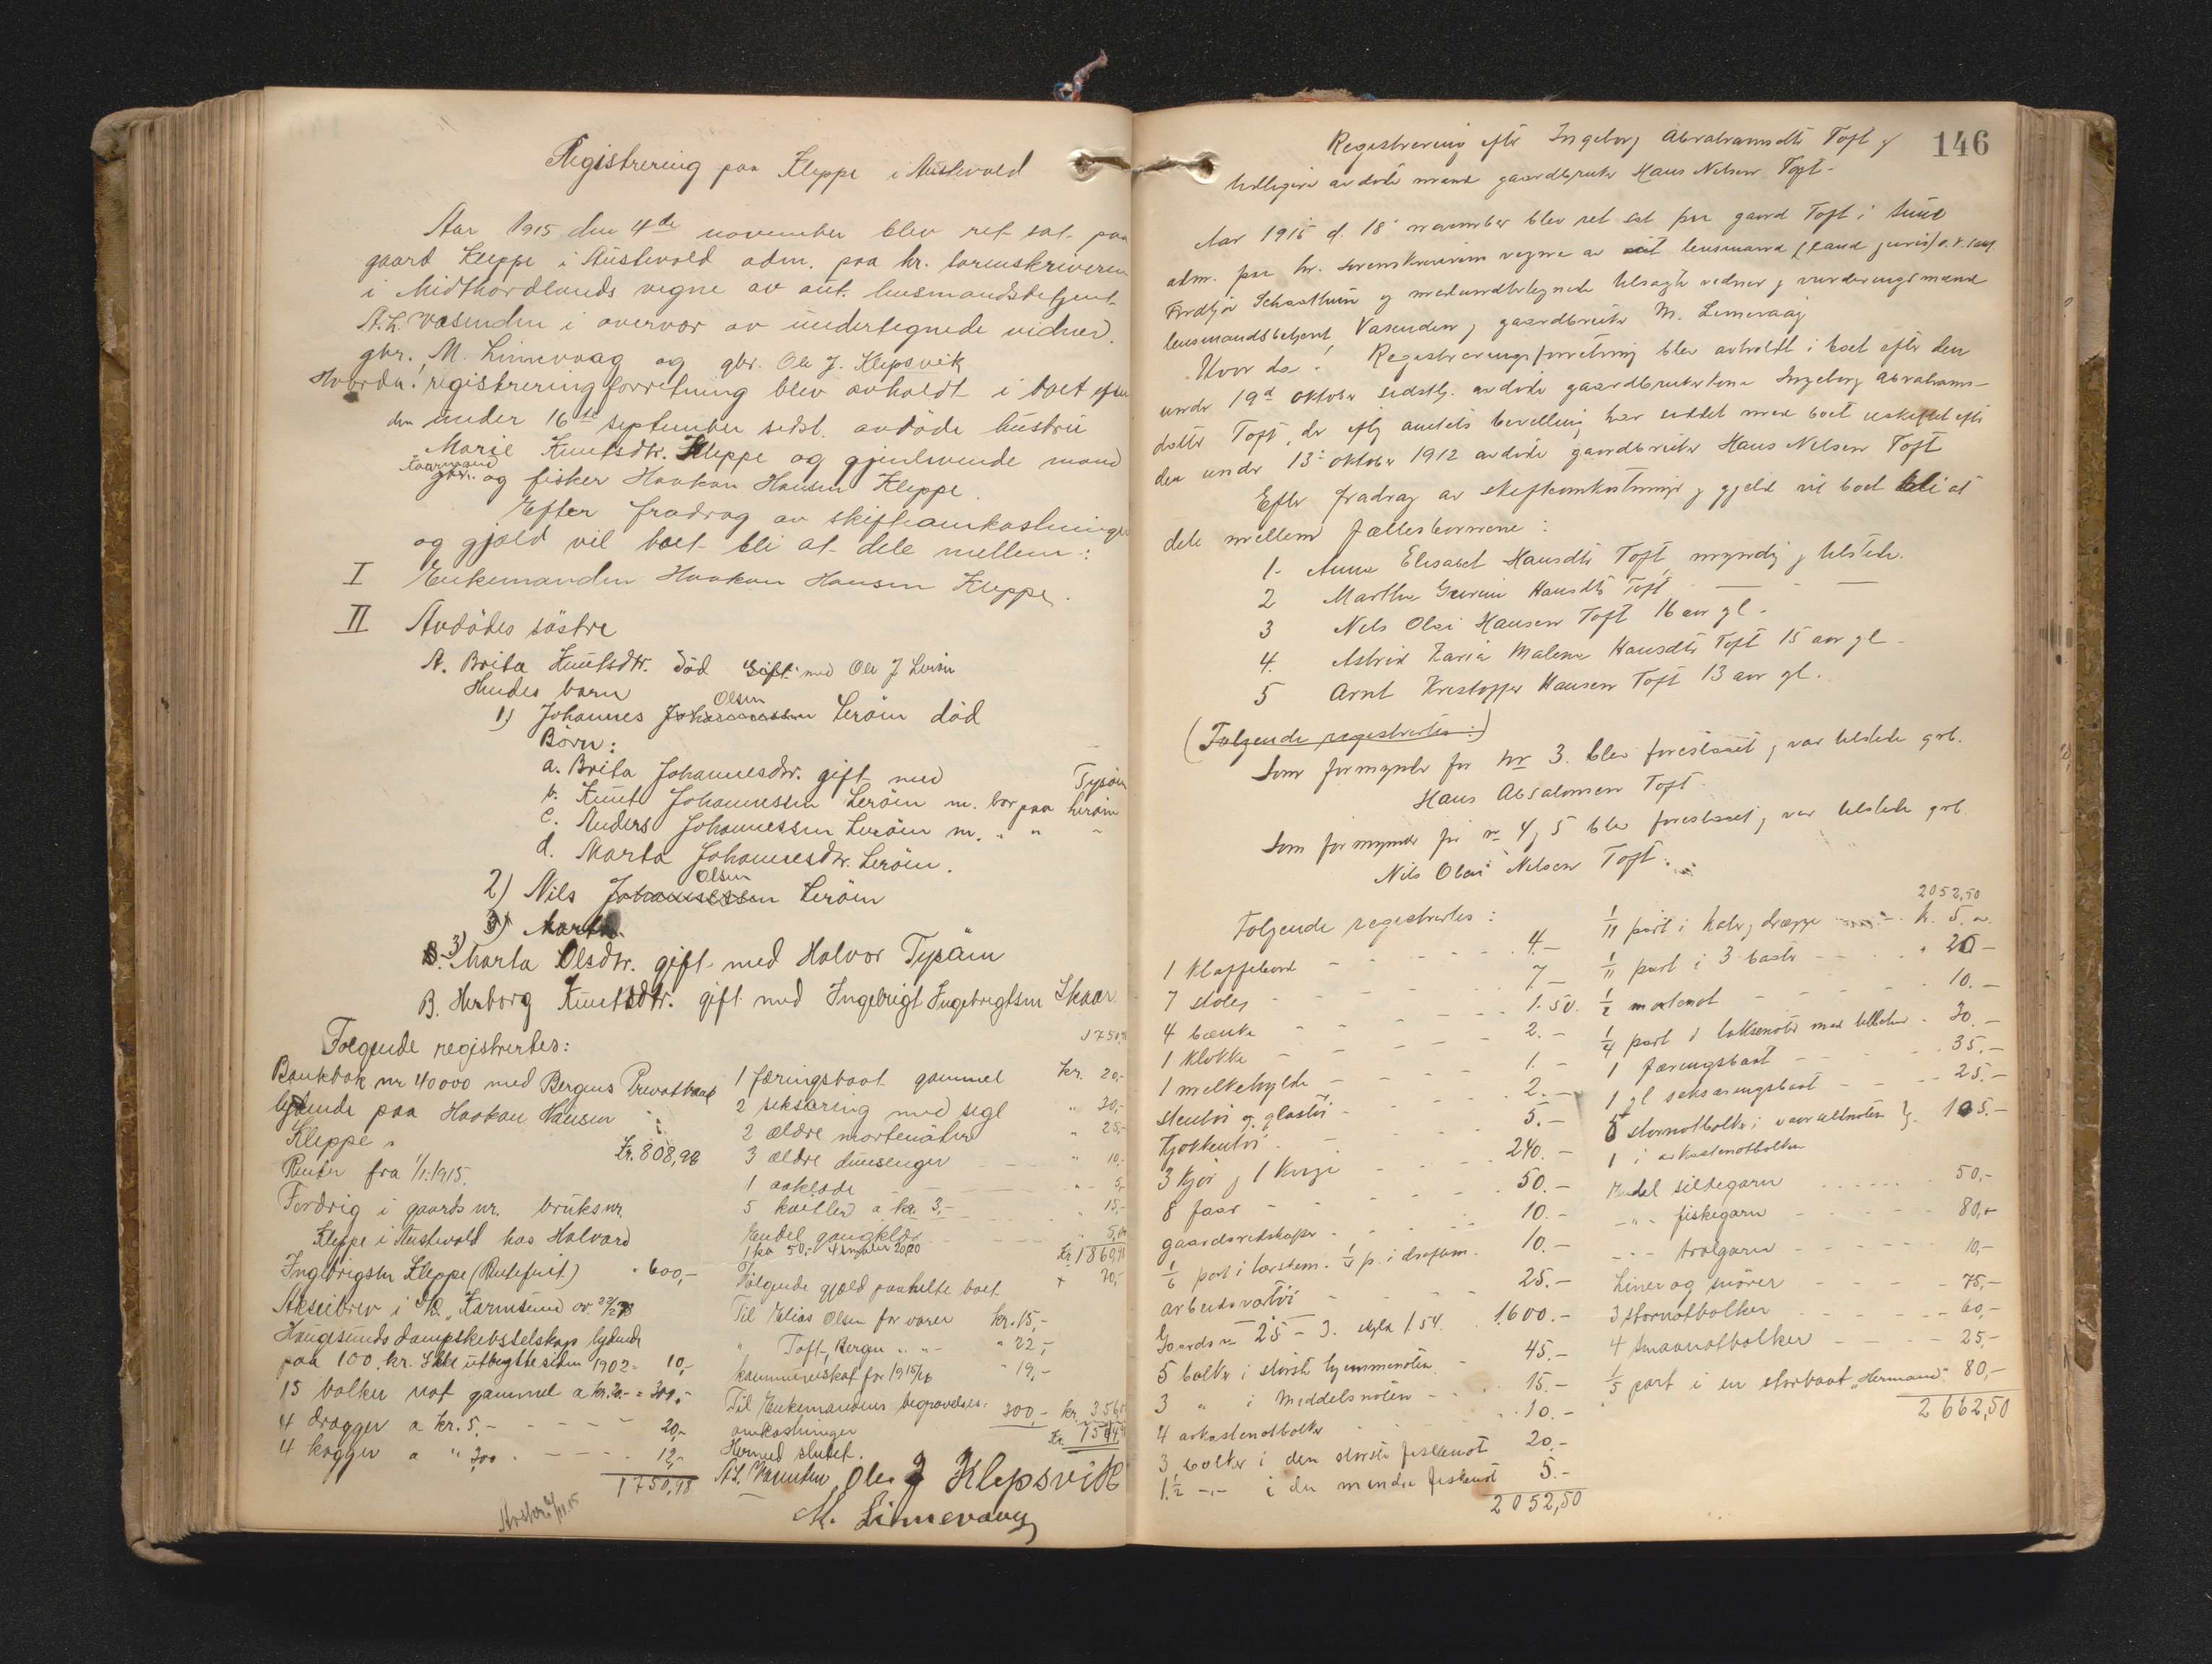 Registrering paa Kleppe i Austevold
Aar 1915 den 4de november blev ret sat paa
gaard Kleppe i Austevold adm. paa hr. sorenskriveren
i Midthordlands vegne av aut. lensmandsbetjent
A.L. Vasenden i overvær av undertegnede vidner.
gbr. M. Linnevaag og gbr. Ole J. Klepsvik
Hvorda! registreringforretning blev avholdt i boet efter
den under 16de september sidstl. avdöde hustru
Marie Knutsdtr. Kleppe og gjenlevende mand
Kaarmand
gbr. og fisker Haakon Hansen Kleppe.
Efter fradrag av skifteomkostninger
og gjæld vil boet bli at dele mellem:
I Enkemanden Haakon Hansen Kleppe.
II Avdödes söstre
A. Brita Knutsdtr. död Gift med Ole J Leröin
Hendes barn
Olsen
1) Johannes Johannessen Leröin död
Börn:
a. Brita Johannesdtr. gift med Tysöin
b. Knut Johannessen Leröin m. bor paa Leröin
c. Anders Johannessen Leröin m. " " "
d. Marta Johannesdtr. Leröin.
Olsen
2) Nils Johannessen Leröin
3) Marta
3) Marta Olsdtr. gift med Halvor Tysöin
B. Herborg Knutsdtr. gift med Ingebrigt Ingebrigtsen Skaar
Fölgende registrertes:
Bankbok nr 40000 med Bergens Privatbank
lydende paa Haakon Hansen
Kleppe. Kr. 808,98
Renter fra 1/1. 1915.
Fordrig i gaards nr. bruks nr.
Kleppe i Austevold hos Halvard
Ingebrigtsen Kleppe (Rentefrit) " 600,-
Aksiebrev i D/S. "Karmsund" av
Haugesunds dampskibsselskap lydende
paa 100 kr. Ikke utbygtte siden 1902 = 10,-
15 bolker not gammel a kr. 20.- = 300,-
4 dragger a kr. 5.- 20,-
4 kagger a " 3,00 12,-
1750,98
1 færingsbaat gammel kr. 20,-
2 seksæring med segl " 30,-
2 ældre mortenöter " 25,-
3 ældre dunsenger " 10,-
1 aaklæde " 5,-
5 kaetler a kr. 3,- " 15,-
Endel gangklær
Fölgende gjæld paahvilte boet
Til Elias Olsen for varer kr. 15,-
" Toft, Bergen " " " 22,-
kommuneskat for 1915/16 " 19,-
Til Enkemandens begravelses-
omkostninger 300,- kr. 356,-
Hermed sluttet.
A.L. Vasenden Ole J Klepsvik
M. Linnevaag
146
Registrering efter Ingeborg Abrahamsdtr Toft og
tidligere avdöde mand gaardbruker Hans Nelsen Toft.
Aar 1915 d. 18 november blev ret sat paa gaard Toft i Sund
adm. paa hr. sorenskriverens vegne av lensmand (cand juris)
Schaathun og medundertegnede tilsagte vidner og vurderingsmænd
lensmandsbetjent Vasenden og gaardbruker M. Linnevaag
Hvor da! Registreringsforretning blev avholdt i boet efter den
under 19de oktober sidstl. avdöde gaardbrukerkone Ingeborg Abrahams-
datter Toft, der iflg amtets bevilling har siddet med boet uskiftet efter
den under 13de oktober 1912 avdöde gaardbruker Hans Nelsen Toft
Efter fradrag av skifteomkostninger og gjæld vil boet bli at
dele mellem fællesbarnene:
1. Anna Elisabet Hansdtr Toft, myndig og tilstede.
2 Martha Gurine Hansdtr Toft — " —
3 Nils Olai Hansen Toft 16 aar gl.
4. Astrid Karia Malene Hansdtr Toft 15 aar gl.
5 Arnt Kristoffer Hansen Toft 13 aar gl.
(Følgende registrertes:)
Som formynder for nr 3. blev foreslaaet og var tilstede grb.
Hans Absalonsen Toft.
Som formynder for nr 4 og 5 blev foreslaaet og var tilstede grb.
Nils Olai Nelsen Toft.
Følgende registrertes:
1 klaffebord 4.-
7 stoler 7.-
4 bænke 1.50.
1 klokke 2.-
1 melkehylde 1.-
stentöi og glastöi 2.-
Kjøkkentöi 5.-
3 kjör og 1 kvige 240.-
8 faar 50.-
gaardsredskaper 10.-
10.-
arbeidsvatöi 25.-
Gaardsnr 25 - 3. skyld 1.54. 1600.-
5 bolker i störste hjemmenoten 45.-
3 " i Middelsnoten 15.-
4 arkastenotbolker 10.-
3 bolker i den störste fiskenot 20.-
1½ -"- i den mindre fiskenot 5.-
2052,50
2052,50
1/11 part i kaler og dræger kr. 5.-
1/11 part i 3 baater " 20-
1/2 mortenot 10.-
1/4 part i laksenoter med tilbehör 30.-
1 færingsbaat 35.-
1 gl seksæringsbaat 25.-
stornotbolker i vaarsildnoten } 105.-
1 i arkastenotbolken
Endel sildegarn 50,-
-"- fiskegarn 80,-
-"- trolgarn 10,-
Liner og snörer 75,-
3 stornotbolker 60,-
4 smaanotbolker 25,-
1/5 part i en storbaat "Hermand" 80,-
2662,50